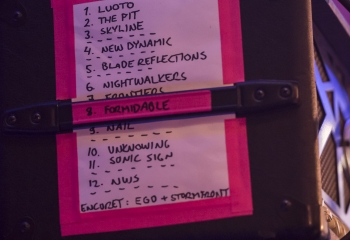 1. LUOTO
2. THE PIT
3. SKYLINE
4. NEW DYNAMIC
5. BLADE REFLECTIONS
6. NIGHTWALKERS
7. FRONTIERS
8. FORMIDABLE
9. NAIL
10. UNKNOWING
11. SONIC SIGN
12. NWS
ENCORET: EGO + STORMFRONT